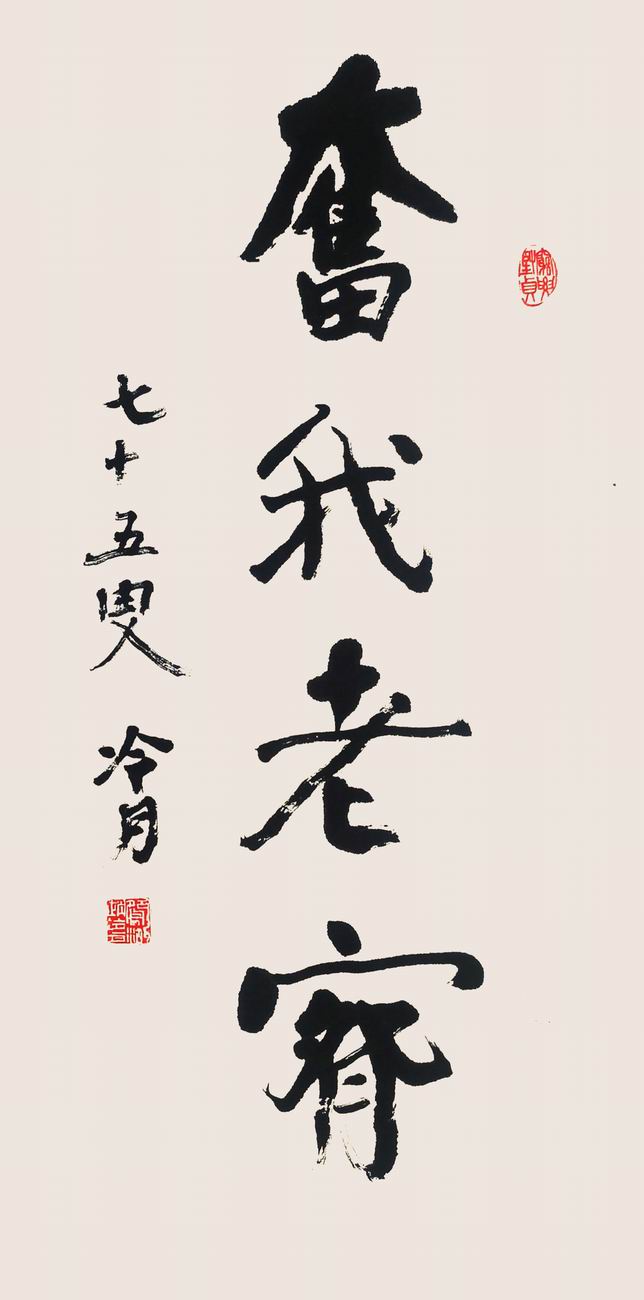 奮我老
七十五叟 冷月